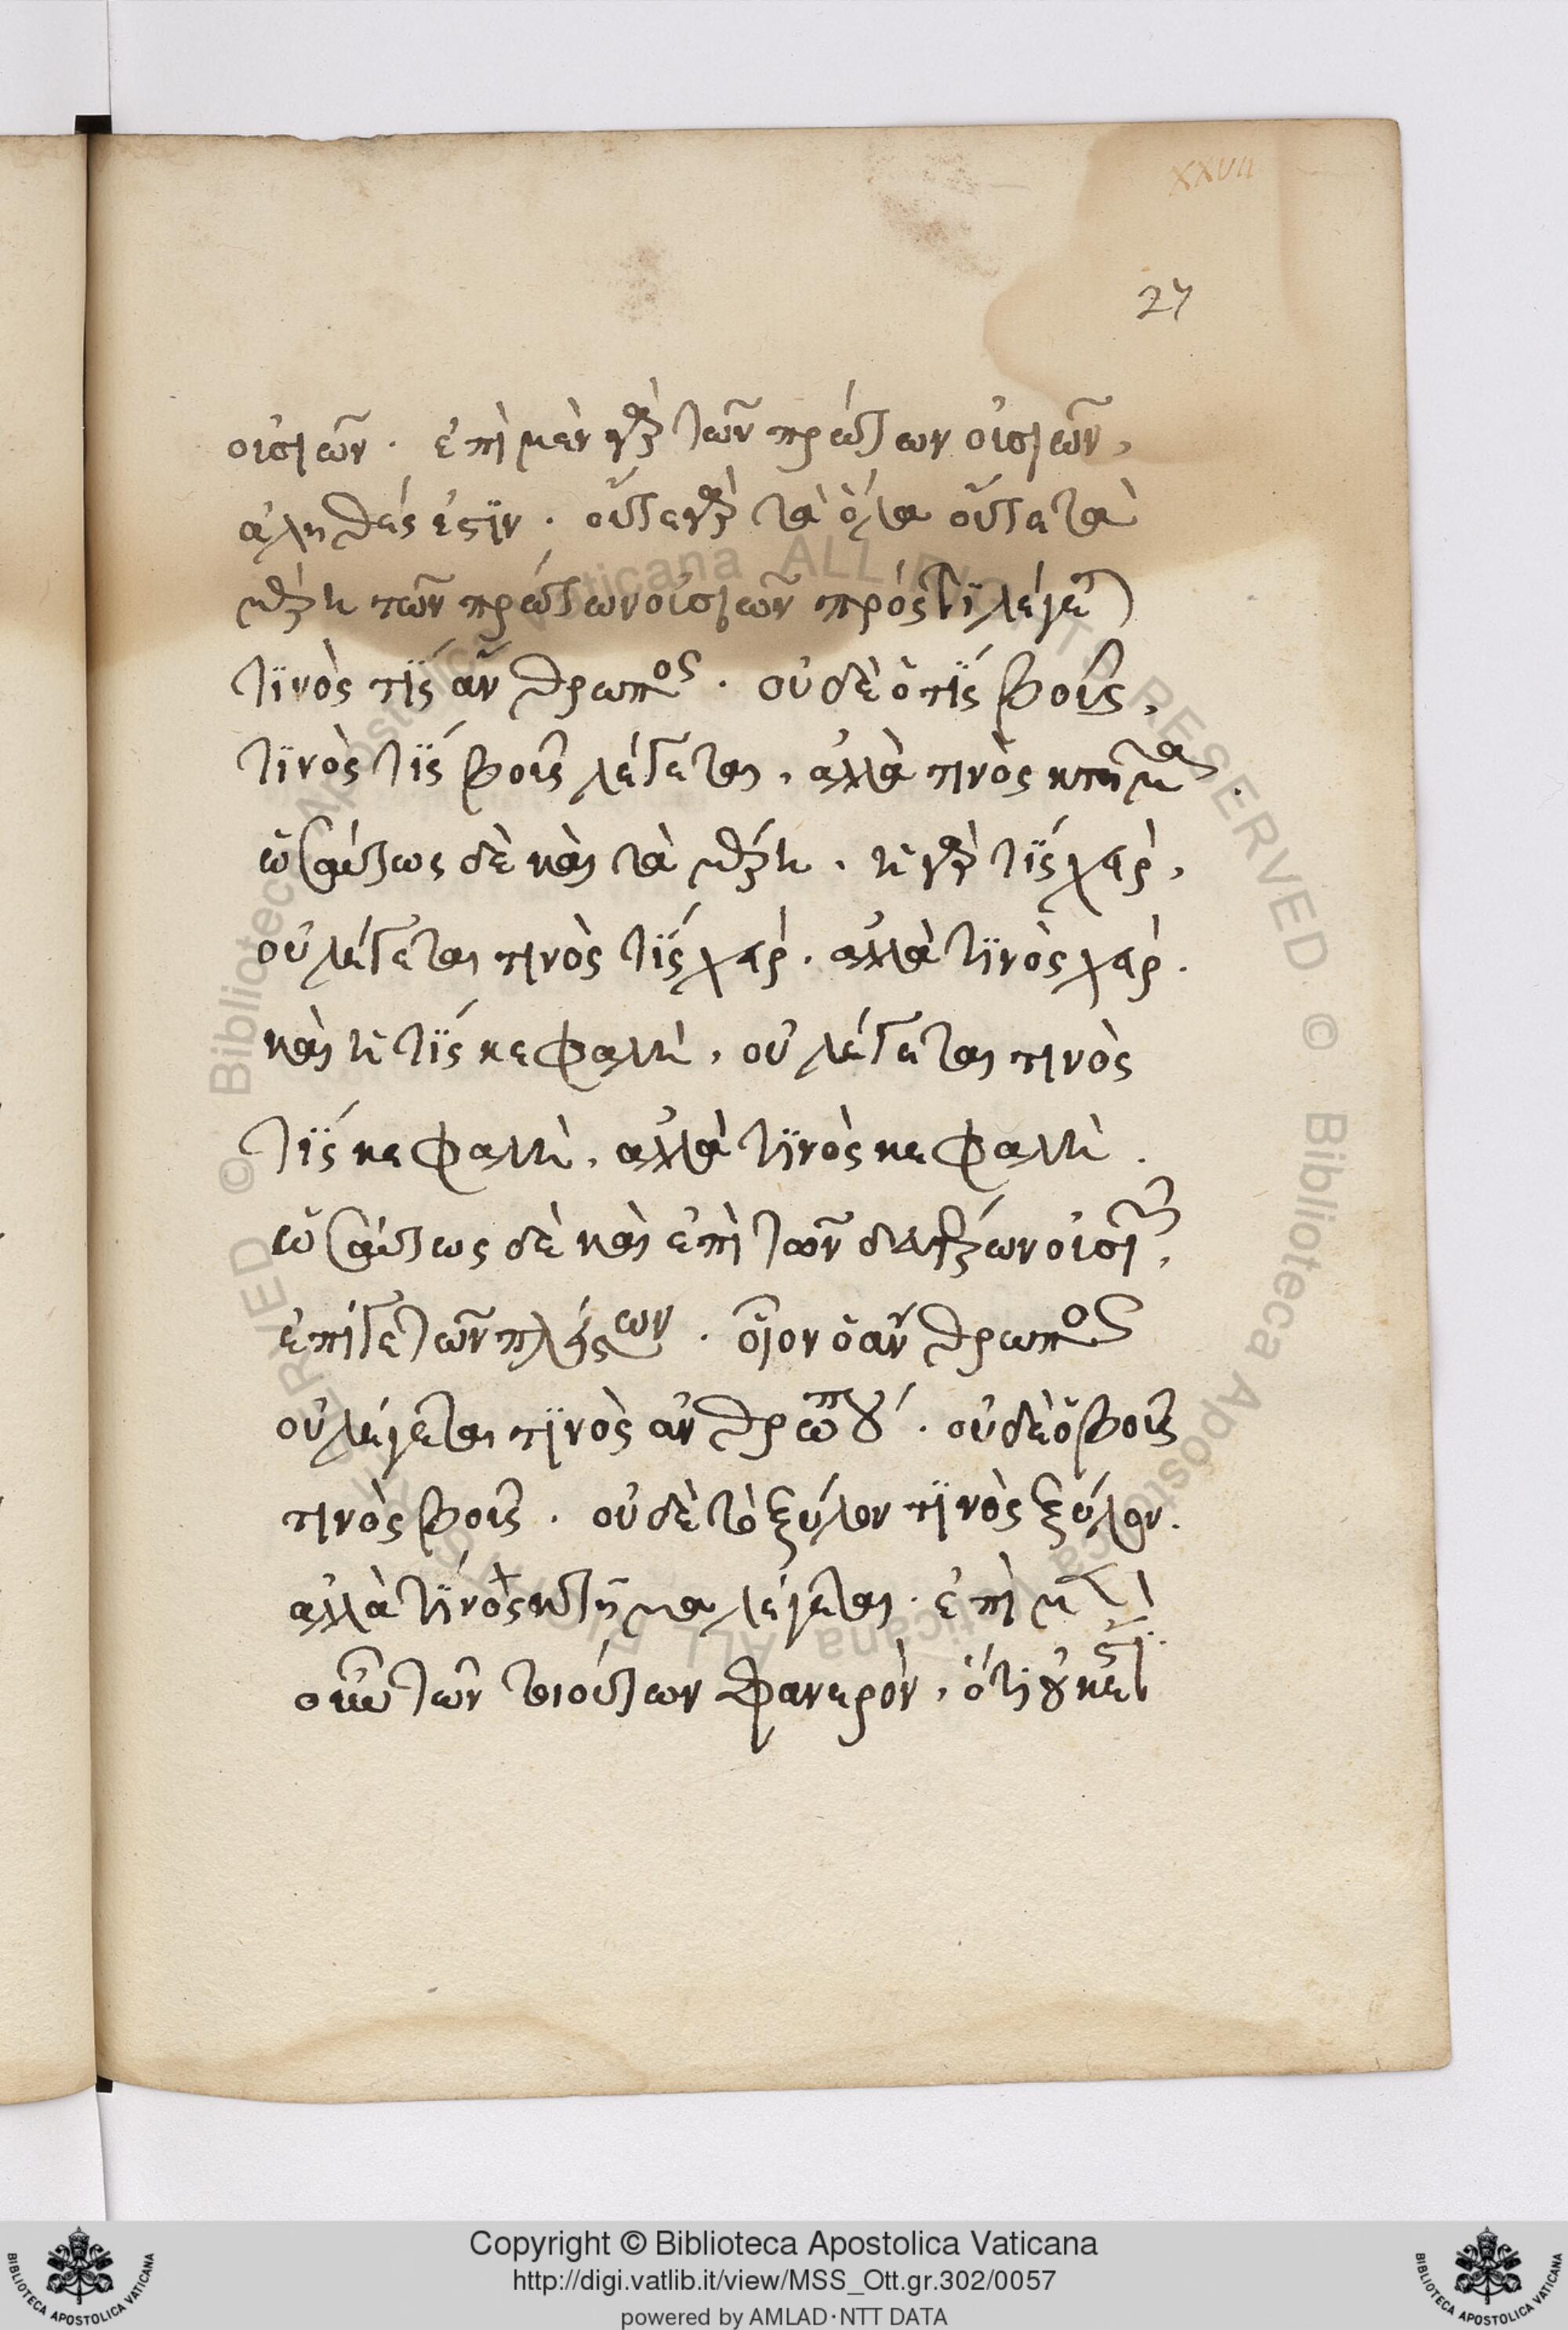 XXVII
27
οὐσιῶν. ἐπὶ μὲν γὰρ τῶν πρώτων οὐσιῶν,
ἀληθές ἐστιν. οὔτε γὰρ τὰ ὅλα οὔτε τὰ
μέρη τῶν πρώτων οὐσιῶν πρός τι λέγεται
τινὸς τὶς ἄνθρωπος. οὐδὲ ὁ τὶς βοῦς,
τινὸς τὶς βοῦς λέγεται, ἀλλὰ τινὸς κτῆμα.
ὡσαύτως δὲ καὶ τὰ μέρη. ἡ γὰρ τὶς χεὶρ,
οὐ λέγεται τινὸς τὶς χεὶρ. ἀλλὰ τινὸς χεὶρ.
καὶ ἡ τὶς κεφαλὴ, οὐ λέγεται τινὸς
τὶς κεφαλὴ, ἀλλὰ τινὸς κεφαλὴ.
ὡσαύτως δὲ καὶ ἐπὶ τῶν δευτέρων οὐσιῶν,
ἐπί γε τῶν πλείστων. οἷον ὁ ἄνθρωπος
οὐ λέγεται τινὸς ἀνθρώπου. οὐδὲ ὁ βοῦς
τινὸς βοῦς. οὐδὲ τὸ ξύλον τινὸς ξύλον.
ἀλλὰ τινὸς κτῆμα λέγεται. ἐπὶ μὲν
οὖν τῶν τοιούτων φανερὸν, ὅτι οὐκ ἔστι
Copyright © Biblioteca Apostolica Vaticana
http://digi.vatlib.it/view/MSS_Ott.gr.302/0057
powered by AMLAD·NTT DATA